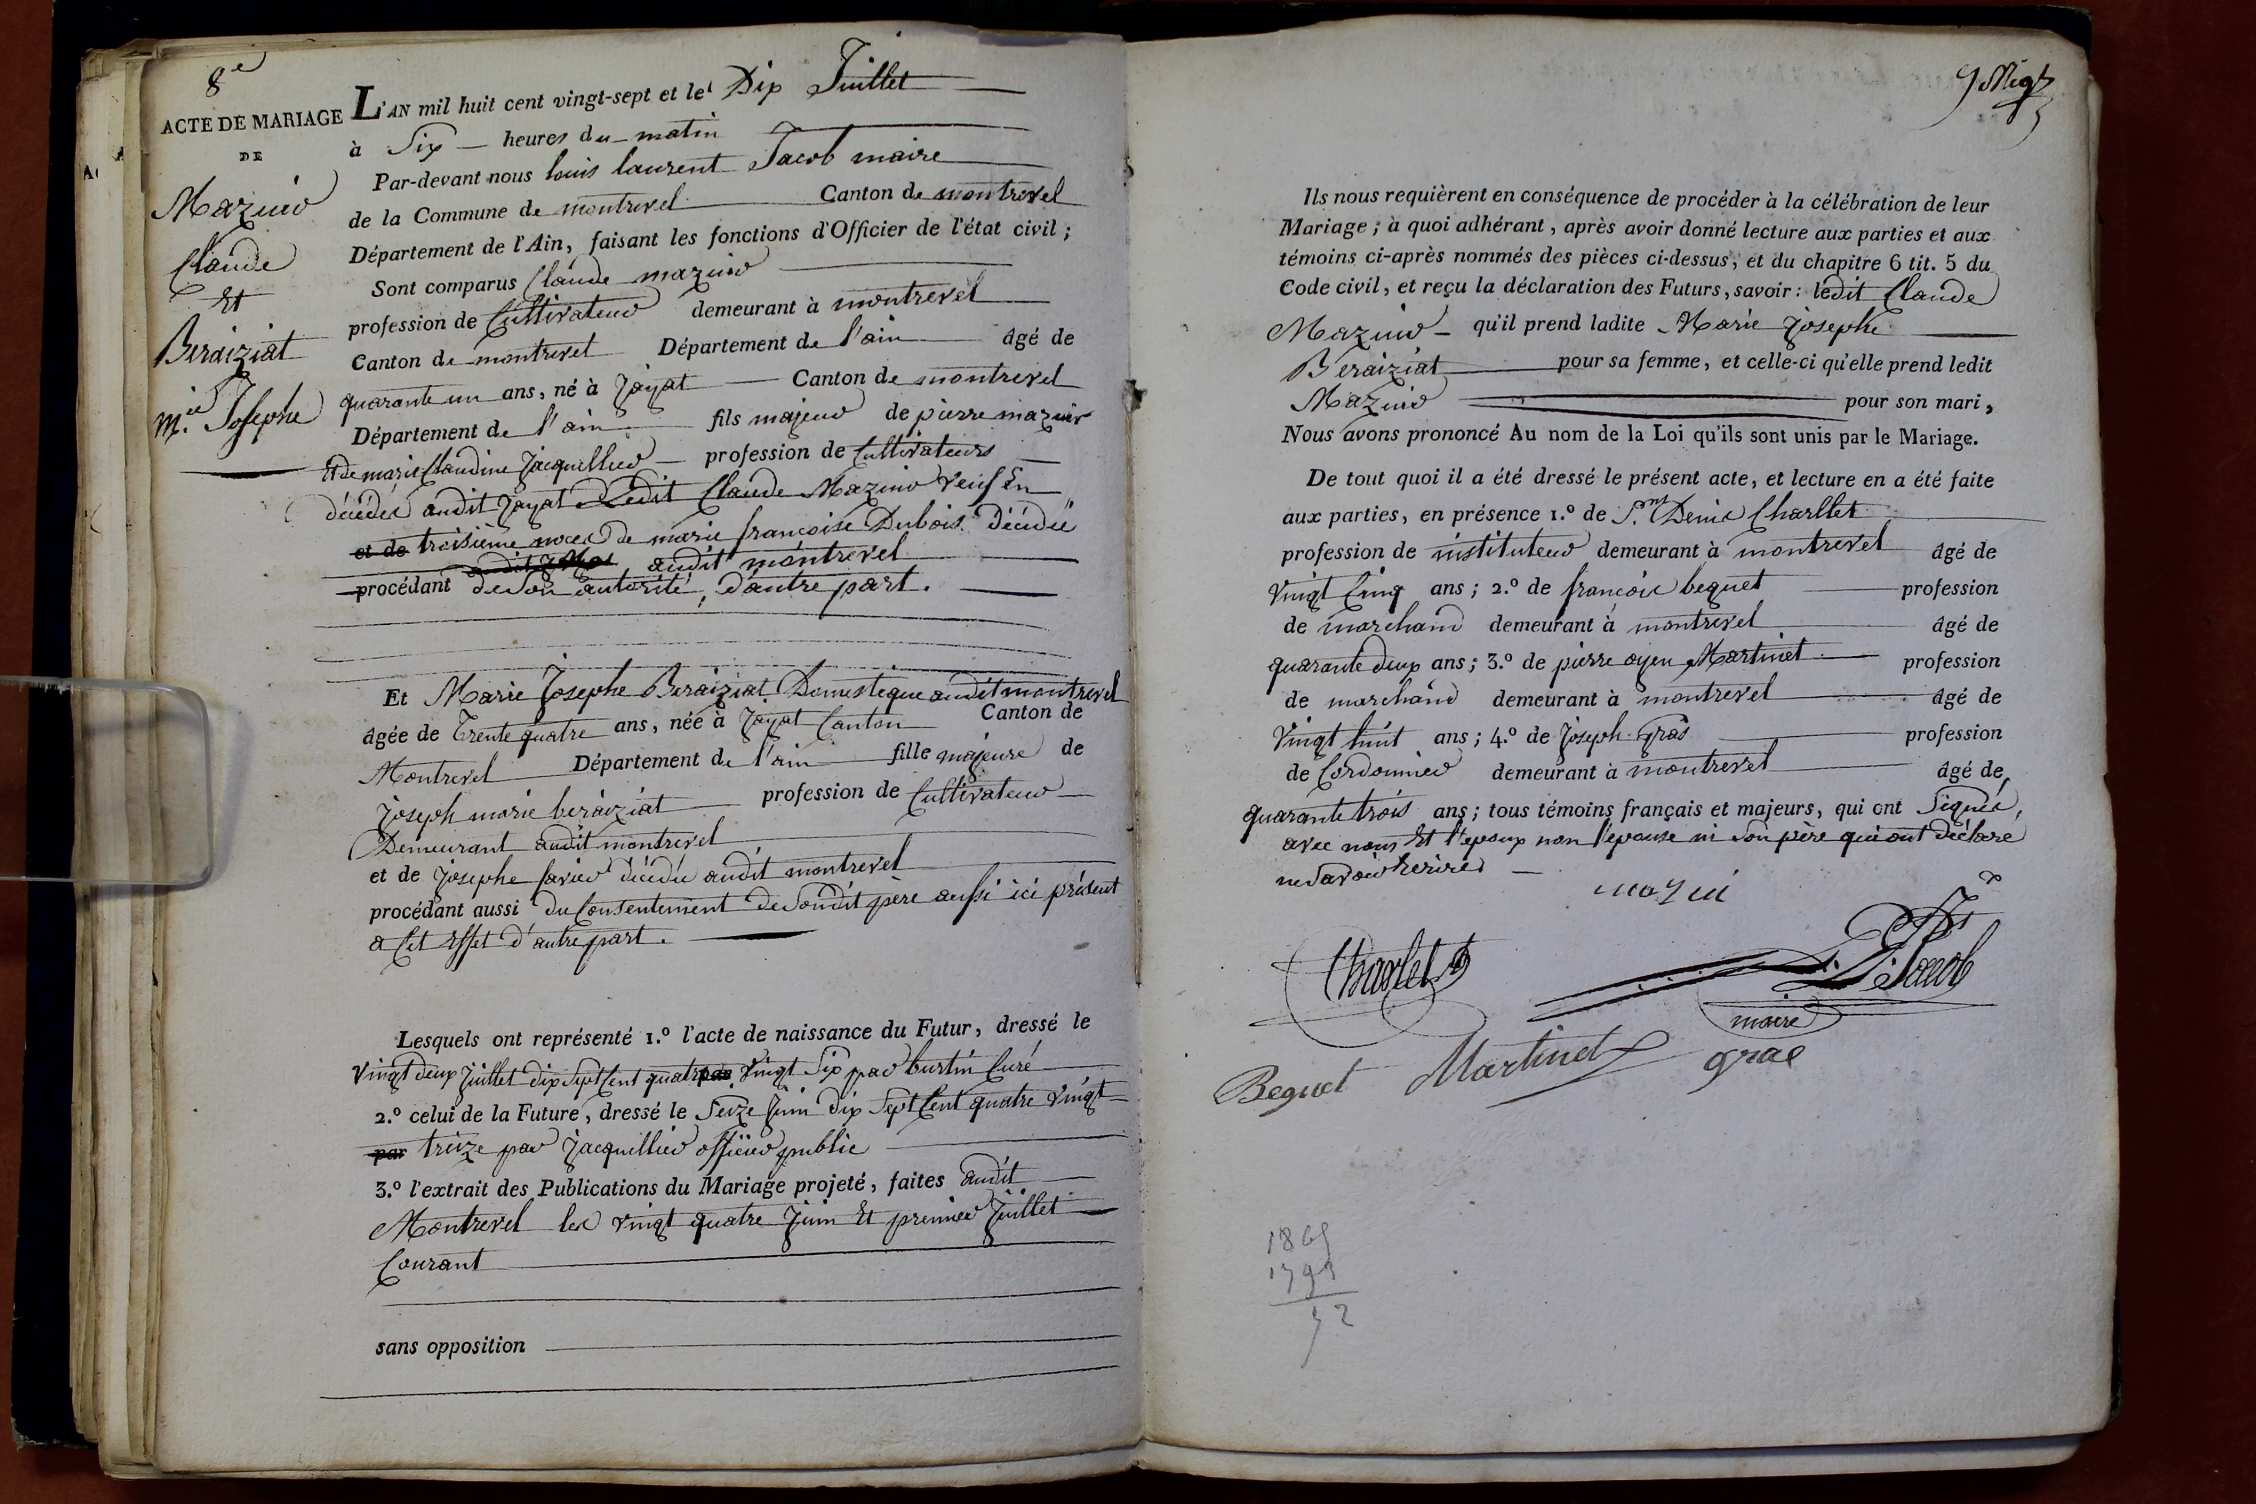 8e
ACTE DE MARIAGE
DE
Mazuir
Claude
Et
Beraiziat
m.ie Josephe
L'AN mil huit cent vingt-sept et le Dix Juillet
à Six heures du matin
Par-devant nous louis laurent Jacob maire
de la Commune de montrevel Canton de montrevel
Département de l'Ain, faisant les fonctions d'Officier de l'état civil ;
Sont comparus Claude mazuir
profession de Cultivateur demeurant à montrevel
Canton de montrevel Département de l'ain âgé de
quarante un ans, né à Jayat Canton de montrevel
Département de l'ain fils majeur de pierre mazuir
Et de marie Claudine Jacquillier profession de Cultivateurs
décédés audit Jayat Ledit Claude Mazuir Veuf En
et de troisième noces de marie françoise Dubois décédée
audit Jayat audit montrevel
procédant de Son autorité, d'autre part.
Et Marie Josephe Beraiziat Domestique audit montrevel
âgée de Trente quatre ans, née à Jayat Canton Canton de
Montrevel Département de l'ain fille majeure de
Joseph marie beraiziat profession de Cultivateur
Demeurant audit montrevel
et de Josephe favier décédée audit montrevel
procédant aussi du Consentement de Son dit père aussi ici présent
a Cet Effet d'autre part.
Lesquels ont représenté 1.º l'acte de naissance du Futur, dressé le
Vingt deux Juillet dix Sept Cent quatre par Vingt Six par burtin Curé
2.º celui de la Future, dressé le Seize Juin dix Sept Cent quatre Vingt
par treize par Jacquillier officier public
3.º l'extrait des Publications du Mariage projeté, faites audit
Montrevel les vingt quatre Juin Et premier Juillet
Courant
sans opposition
Ils nous requièrent en conséquence de procéder à la célébration de leur
Mariage ; à quoi adhérant, après avoir donné lecture aux parties et aux
témoins ci-après nommés des pièces ci-dessus, et du chapitre 6 tit. 5 du
Code civil, et reçu la déclaration des Futurs, savoir : ledit Claude
Mazuir qu'il prend ladite Marie Josephe
Beraiziat pour sa femme, et celle-ci qu'elle prend ledit
Mazuir pour son mari,
Nous avons prononcé Au nom de la Loi qu'ils sont unis par le Mariage.
De tout quoi il a été dressé le présent acte, et lecture en a été faite
aux parties, en présence 1.º de S.nt Denis Charllet
profession de instituteur demeurant à montrevel âgé de
Vingt Cinq ans ; 2.º de françois bequet profession
de marchand demeurant à montrevel âgé de
quarante deux ans ; 3.º de pierre ayen Martinet profession
de marchand demeurant à montrevel âgé de
Vingt huit ans ; 4.º de Joseph Gras profession
de Cordonnier demeurant à montrevel âgé de
quarante trois ans ; tous témoins français et majeurs, qui ont Signés,
avec nous Et l'epoux non l'épouse ni Son père qui ont déclaré
ne Savoir Ecrire
mazui
Charlet
L. Jacob
maire
Bequet Martinet gras
1865
1793
72